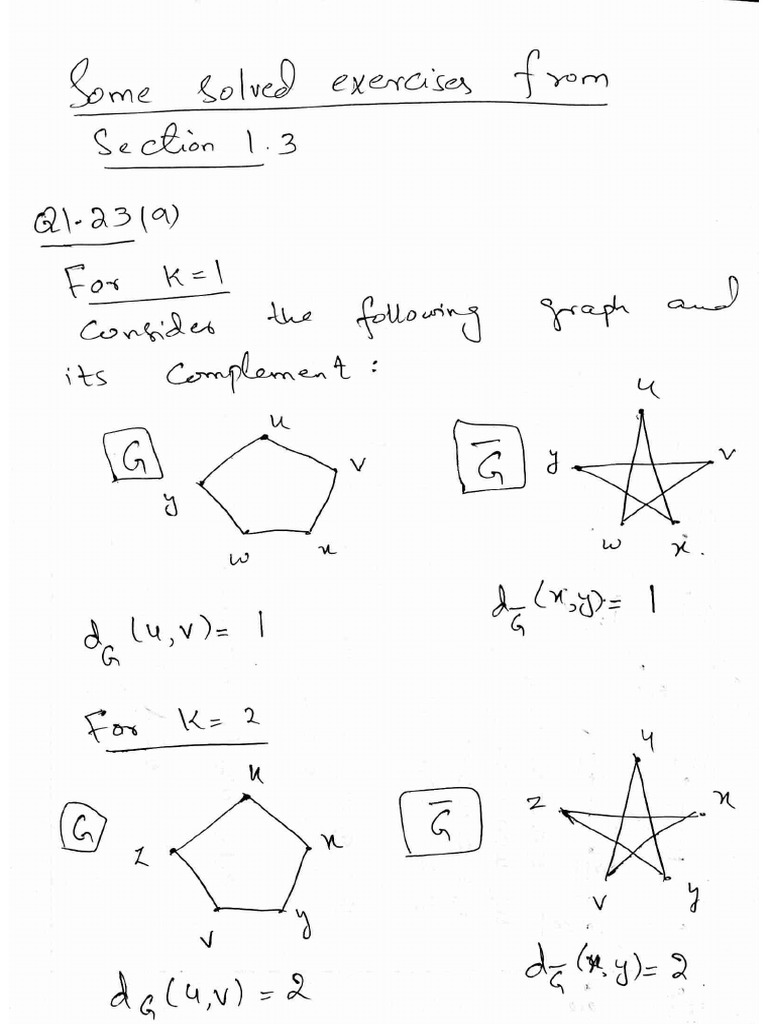 Some solved exercises from
Section 1.3
Q1.23(a)
For K=1
Consider the following graph and
its complement:
G
u
v
y
w
x
G̅
u
y
v
w
x.
d_G (u,v)= 1
d_G̅ (x,y)= 1
For K= 2
G
u
z
x
v
y
G̅
u
z
x
v
y
d_G (u,v) = 2
d_G̅ (x,y)= 2